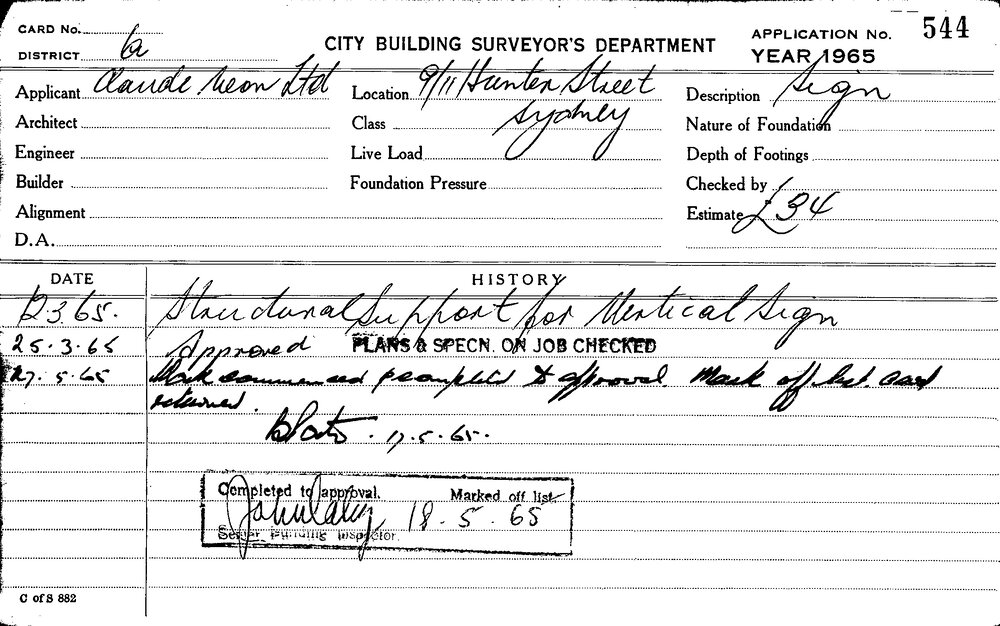 CARD No.
544
APPLICATION No.
DISTRICT 6a
CITY BUILDING SURVEYOR'S DEPARTMENT
YEAR 1965
Applicant Claude Neon Ltd
Location 9/11 Hunter Street
Sydney
Description Sign
Architect
Class
Nature of Foundation
Engineer
Live Load
Depth of Footings
Builder
Foundation Pressure
Checked by
Alignment
Estimate £34
D.A.
DATE
HISTORY
12.3.65. Structural Support for Vertical Sign
25.3.65 Approved PLANS & SPECN. ON JOB CHECKED
17.5.65 Work commenced & completed to approval Mark off list card
returned.
17.5.65.
Completed to approval. Marked off list
18.5.65
Senior Building Inspector.
C of S 882